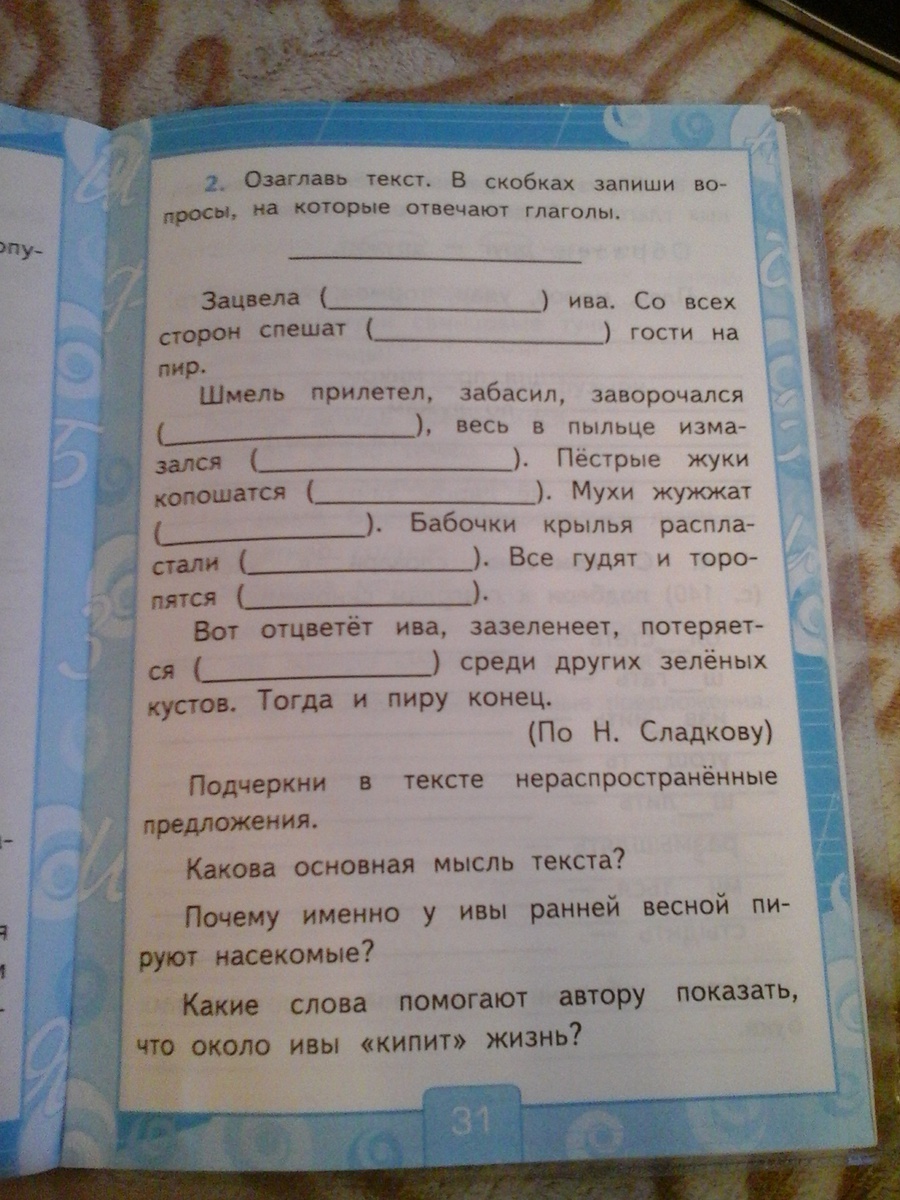 опу-
2. Озаглавь текст. В скобках запиши во-
просы, на которые отвечают глаголы.
Зацвела (____________) ива. Со всех
сторон спешат (____________) гости на
пир.
Шмель прилетел, забасил, заворочался
(____________), весь в пыльце изма-
зался (____________). Пёстрые жуки
копошатся (____________). Мухи жужжат
(____________). Бабочки крылья распла-
стали (____________). Все гудят и торо-
пятся (____________).
Вот отцветёт ива, зазеленеет, потеряет-
ся (____________) среди других зелёных
кустов. Тогда и пиру конец.
(По Н. Сладкову)
Подчеркни в тексте нераспространённые
предложения.
Какова основная мысль текста?
Почему именно у ивы ранней весной пи-
руют насекомые?
Какие слова помогают автору показать,
что около ивы «кипит» жизнь?
31